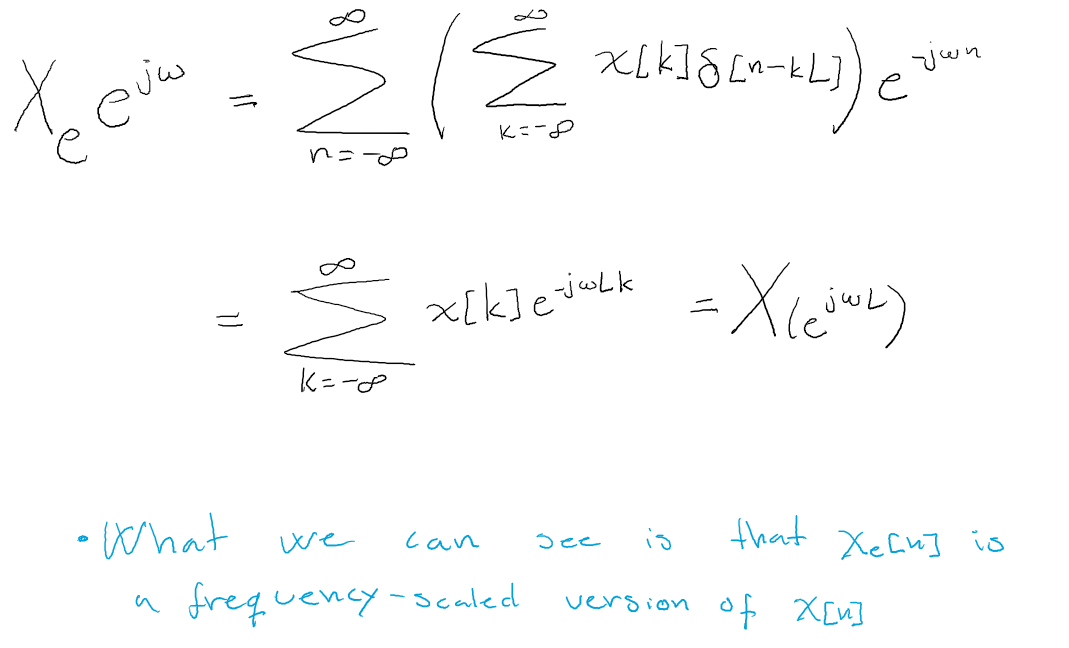 X_e e^{jω} = ∑_{n=-∞}^{∞} ( ∑_{k=-∞}^{∞} x[k] δ[n-kL] ) e^{-jωn}
= ∑_{k=-∞}^{∞} x[k] e^{-jωLk} = X(e^{jωL})
• What we can see is that x_e[n] is
a frequency-scaled version of x[n]